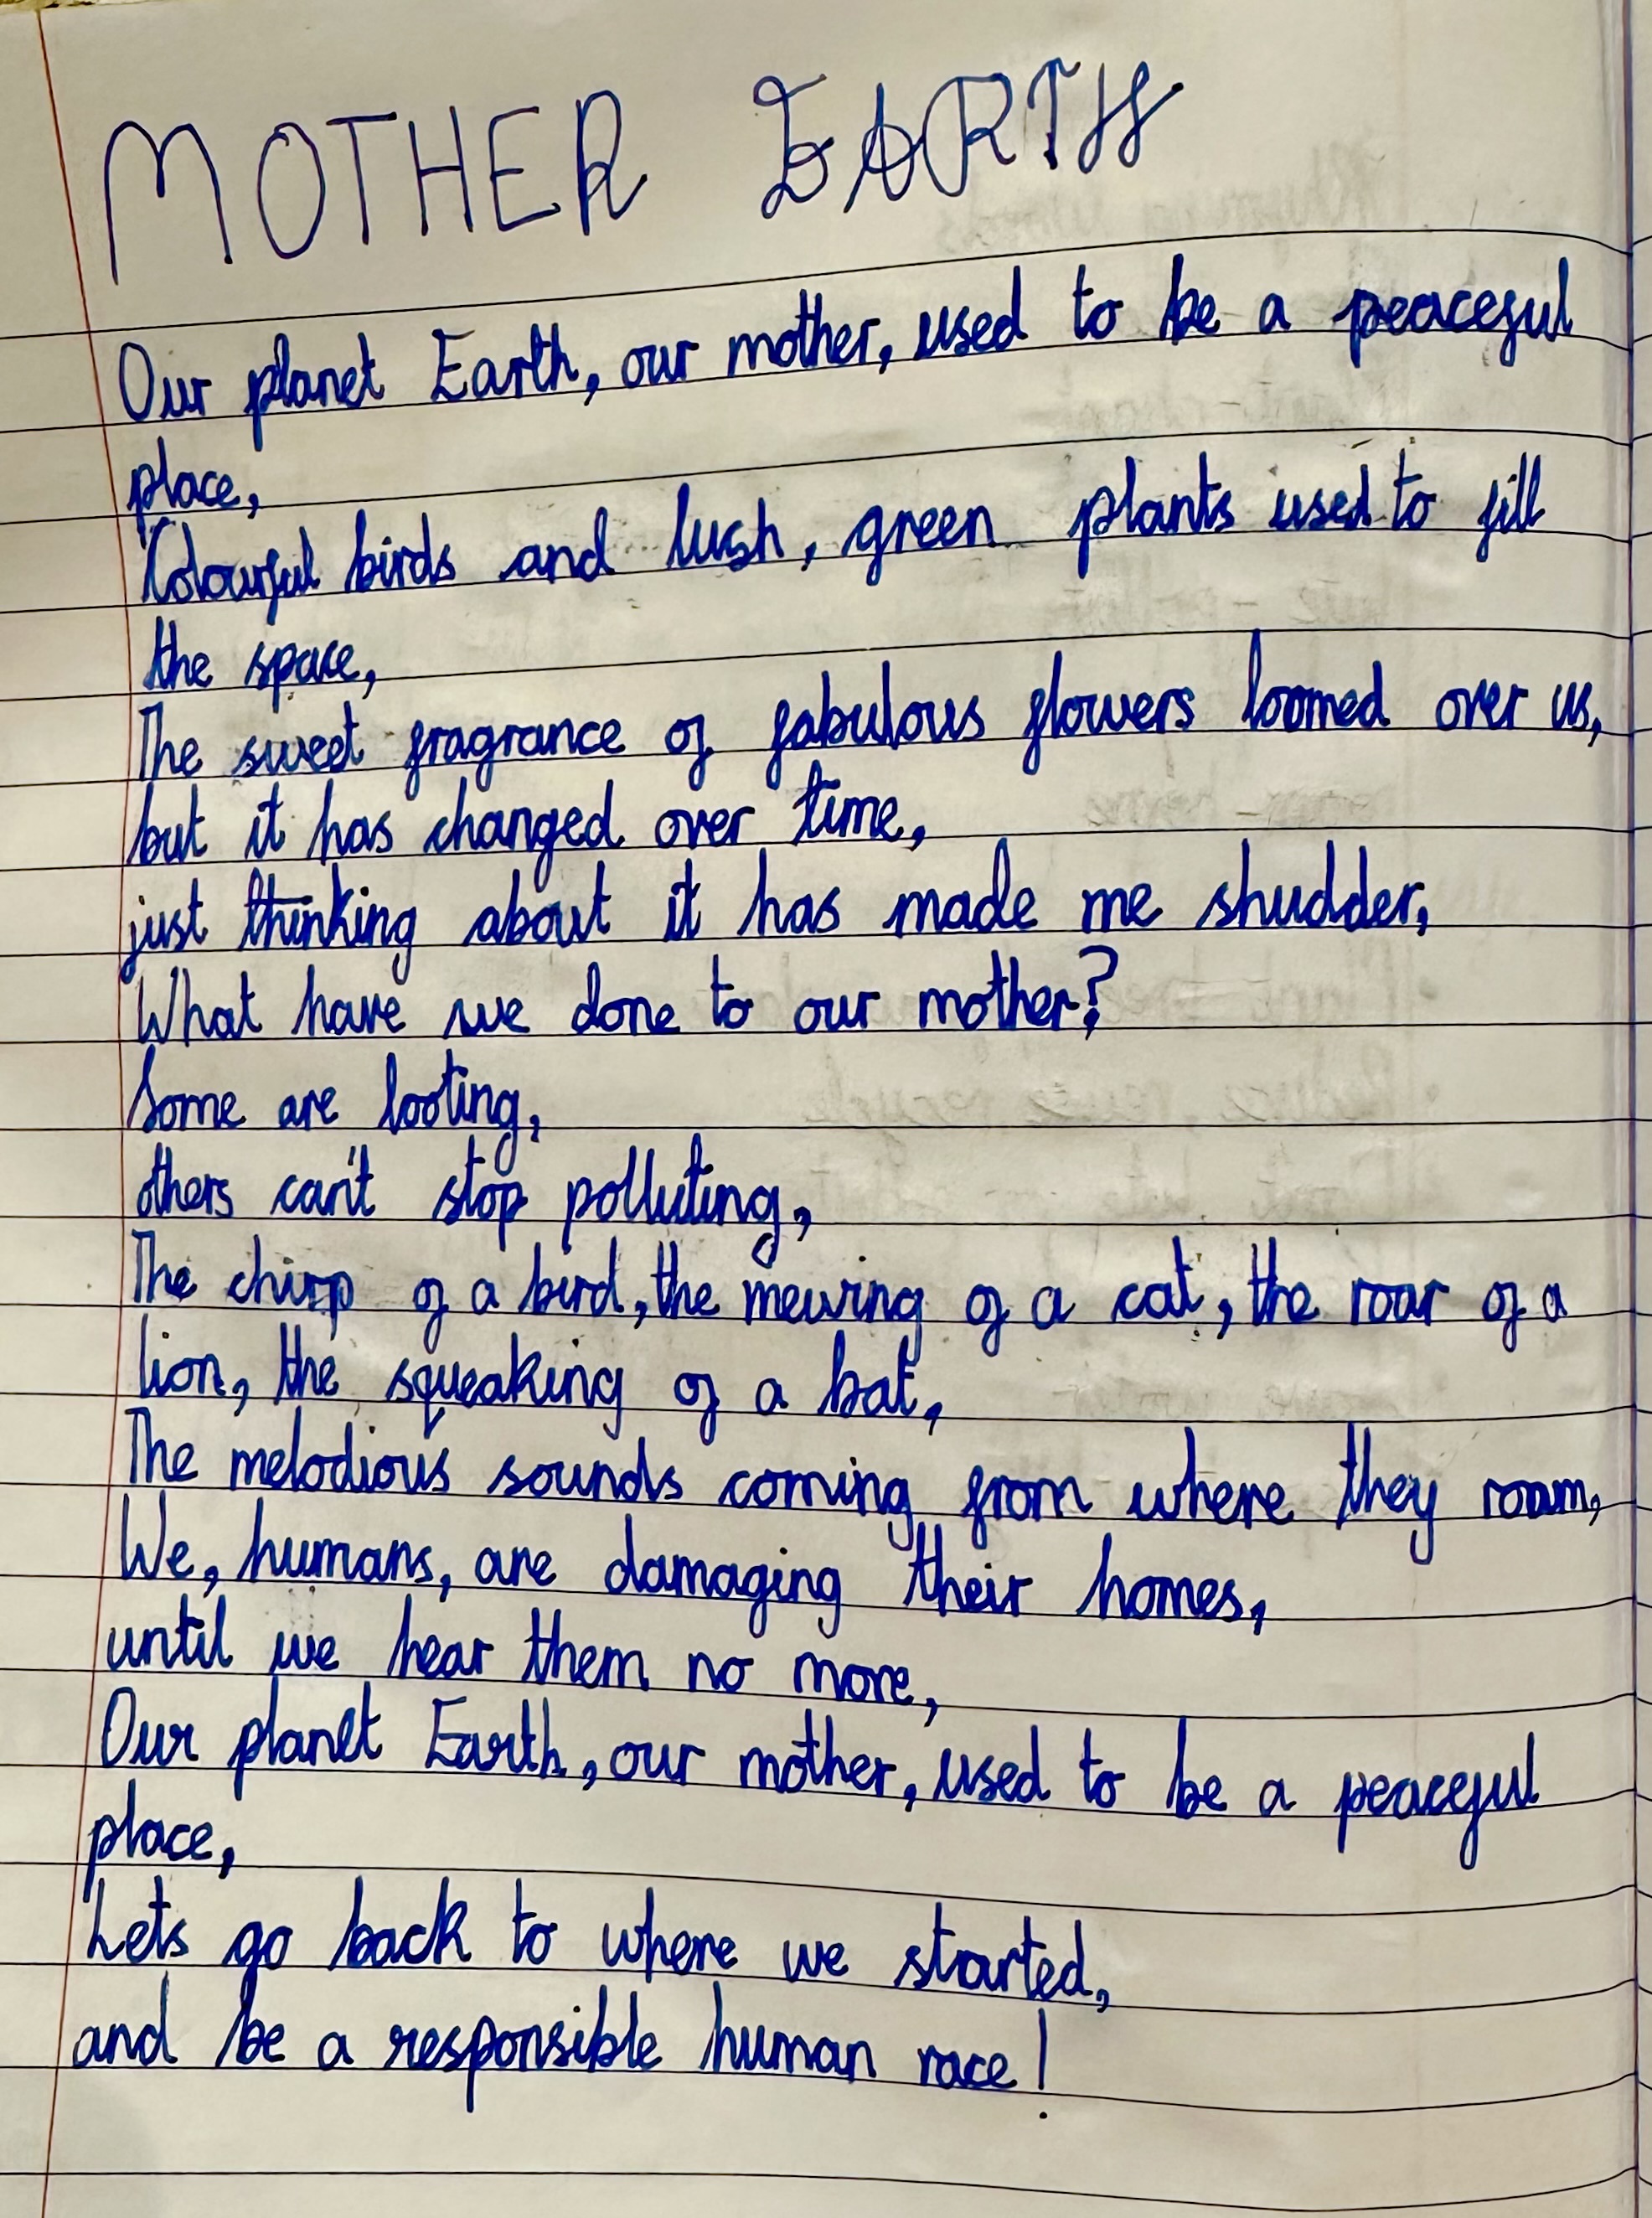 MOTHER EARTH
Our planet Earth, our mother, used to be a peaceful
place,
Colourful birds and lush, green plants used to fill
the space,
The sweet fragrance of fabulous flowers loomed over us,
but it has changed over time,
just thinking about it has made me shudder,
What have we done to our mother?
Some are looting,
others can't stop polluting,
The chirp of a bird, the mewing of a cat, the roar of a
lion, the squeaking of a bat,
The melodious sounds coming from where they roam,
We, humans, are damaging their homes,
until we hear them no more,
Our planet Earth, our mother, used to be a peaceful
place,
Lets go back to where we started,
and be a responsible human race!